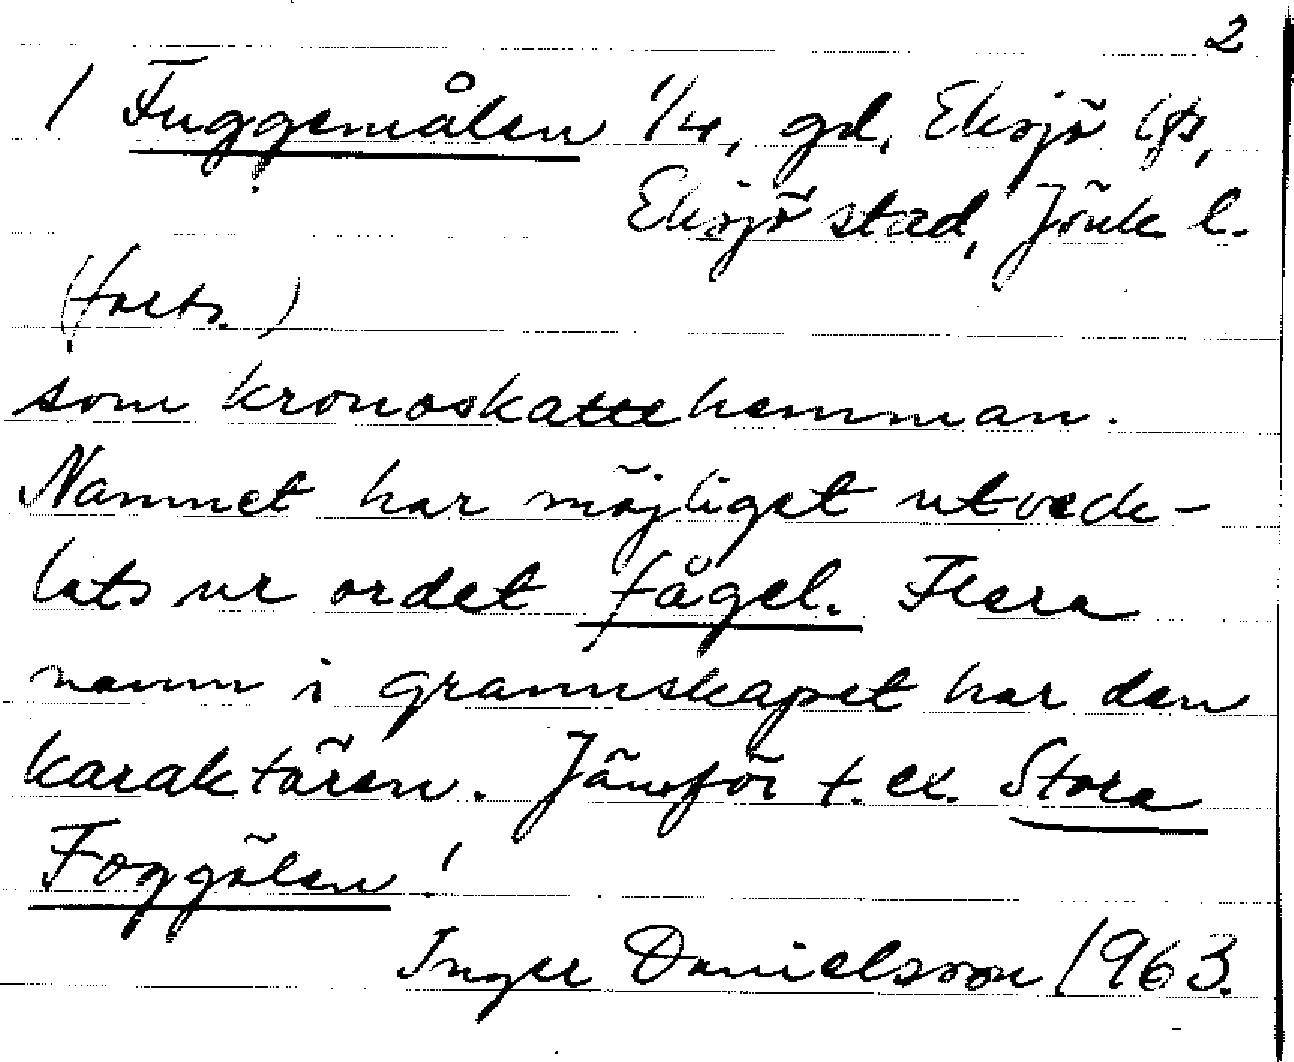 2
/ Fuggemålen 1/4, gd, Eksjö lfs,
Eksjö stad, Jönk. l.
(forts.)
som kronoskattehemman.
Namnet har möjligast utveck-
lats ur ordet fågel. Flera
namn i grannskapet har den
karaktären. Jämför t.ex. Stora
Foggölen!
Inger Danielsson 1963.